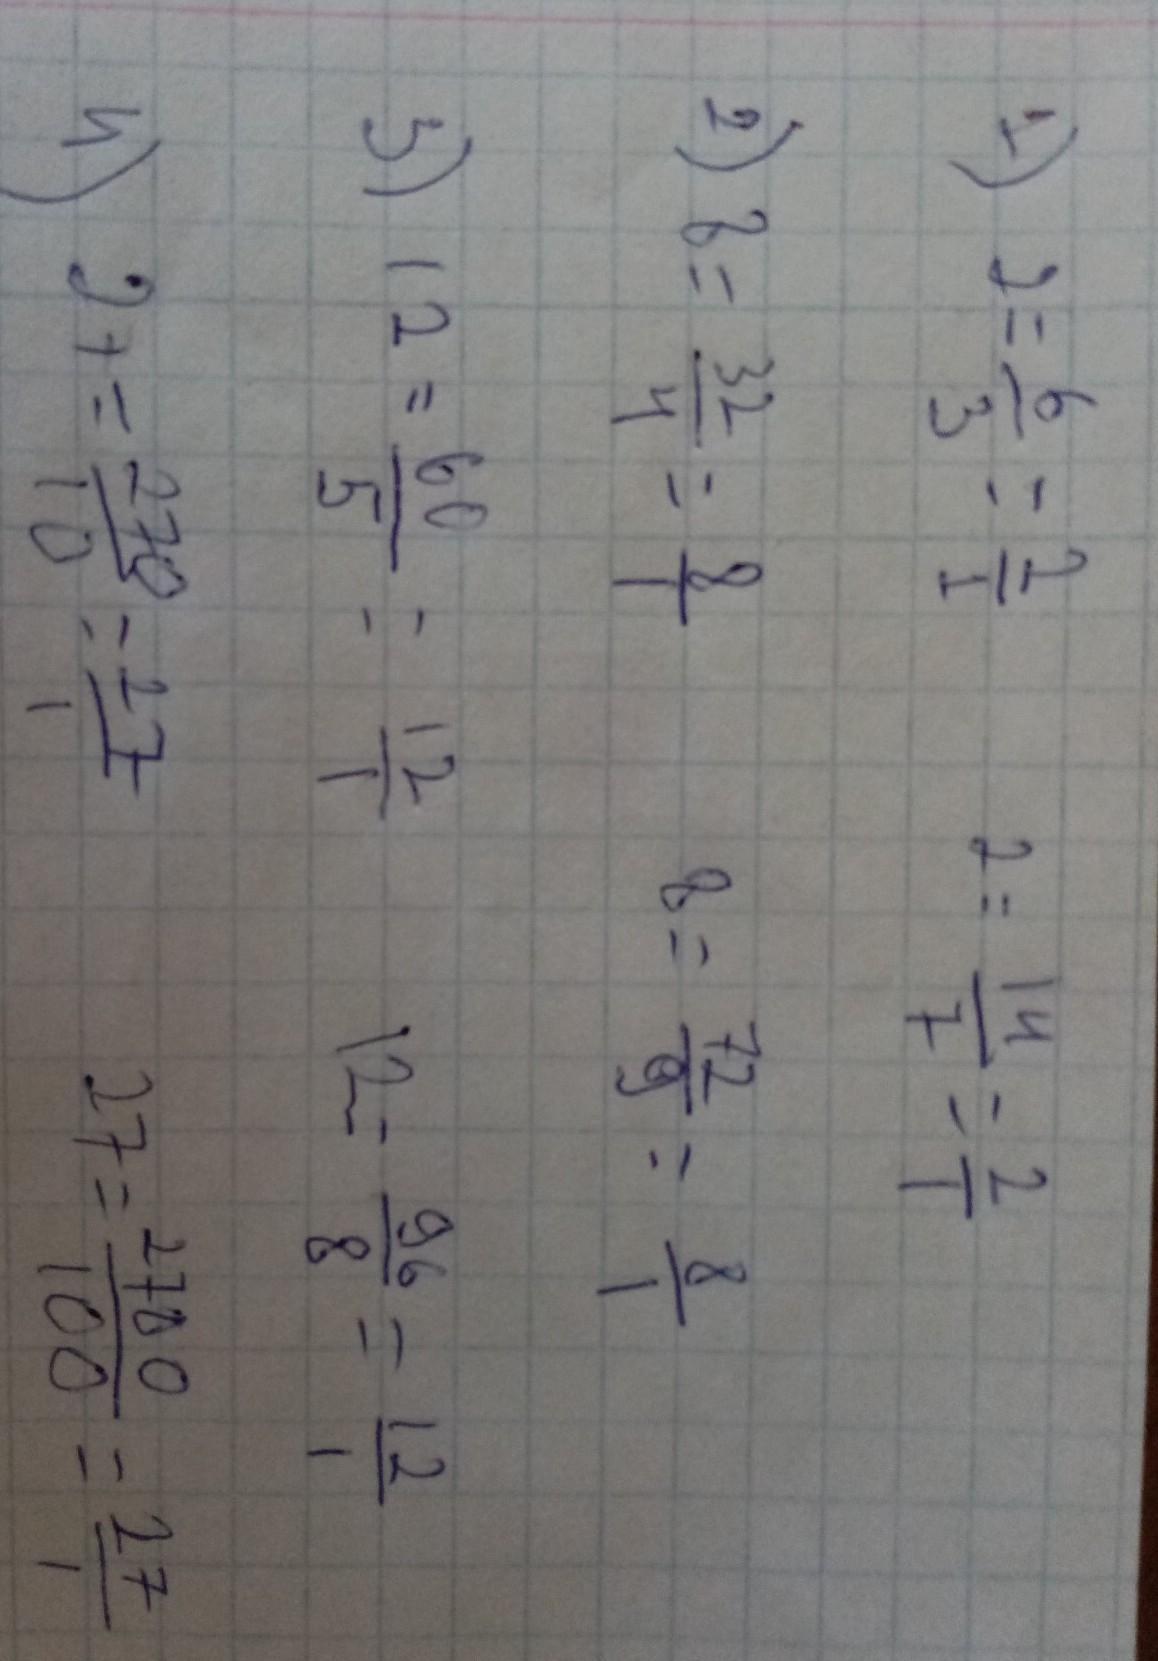 1) 2 = 6/3 = 2/1   2 = 14/7 = 2/1
2) 8 = 32/4 = 8/1   8 = 72/9 = 8/1
3) 12 = 60/5 = 12/1   12 = 96/8 = 12/1
4) 27 = 270/10 = 27/1   27 = 2700/100 = 27/1